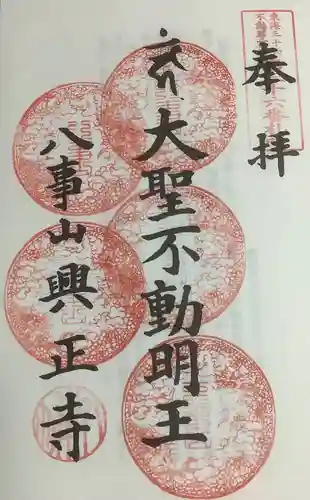 奉拝
大聖不動明王
八事山
興正寺